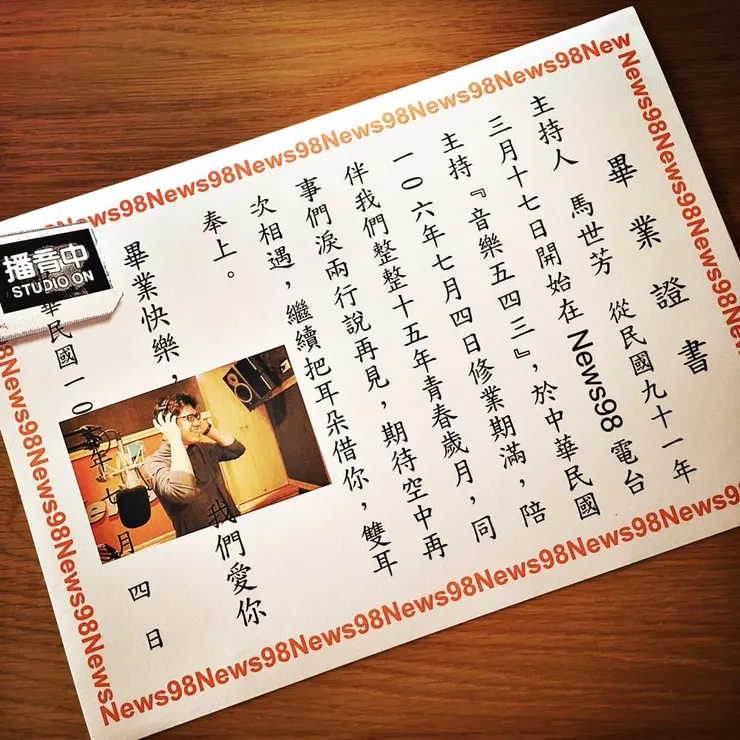 畢業證書
主持人 馬世芳 從民國九十一年
三月十七日開始在News98電台
主持『音樂五四三』，於中華民國
一〇六年七月四日修業期滿，陪
伴我們整整十五年青春歲月，同
事們淚兩行說再見，期待空中再
次相遇，繼續把耳朵借你，雙耳
奉上。
畢業快樂， 我們愛你
華民國一〇 年七月四日
播音中
STUDIO ON
News98News98News98News98News98News98New
News98News98News98News98News98
News98News98News98News98News98News98News98
News98News98News98News98News